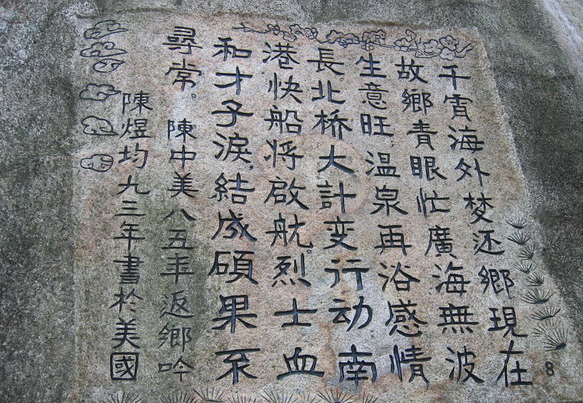 千宵海外梦还鄉現在
故鄉青眼忙廣海無波
生意旺温泉再浴感情
長北桥大計变行动南
港快船将啟航。烈士血
和才子淚結成碩果不
尋常。陳中美八五年返鄉吟
陳煜均九三年書於美國
8